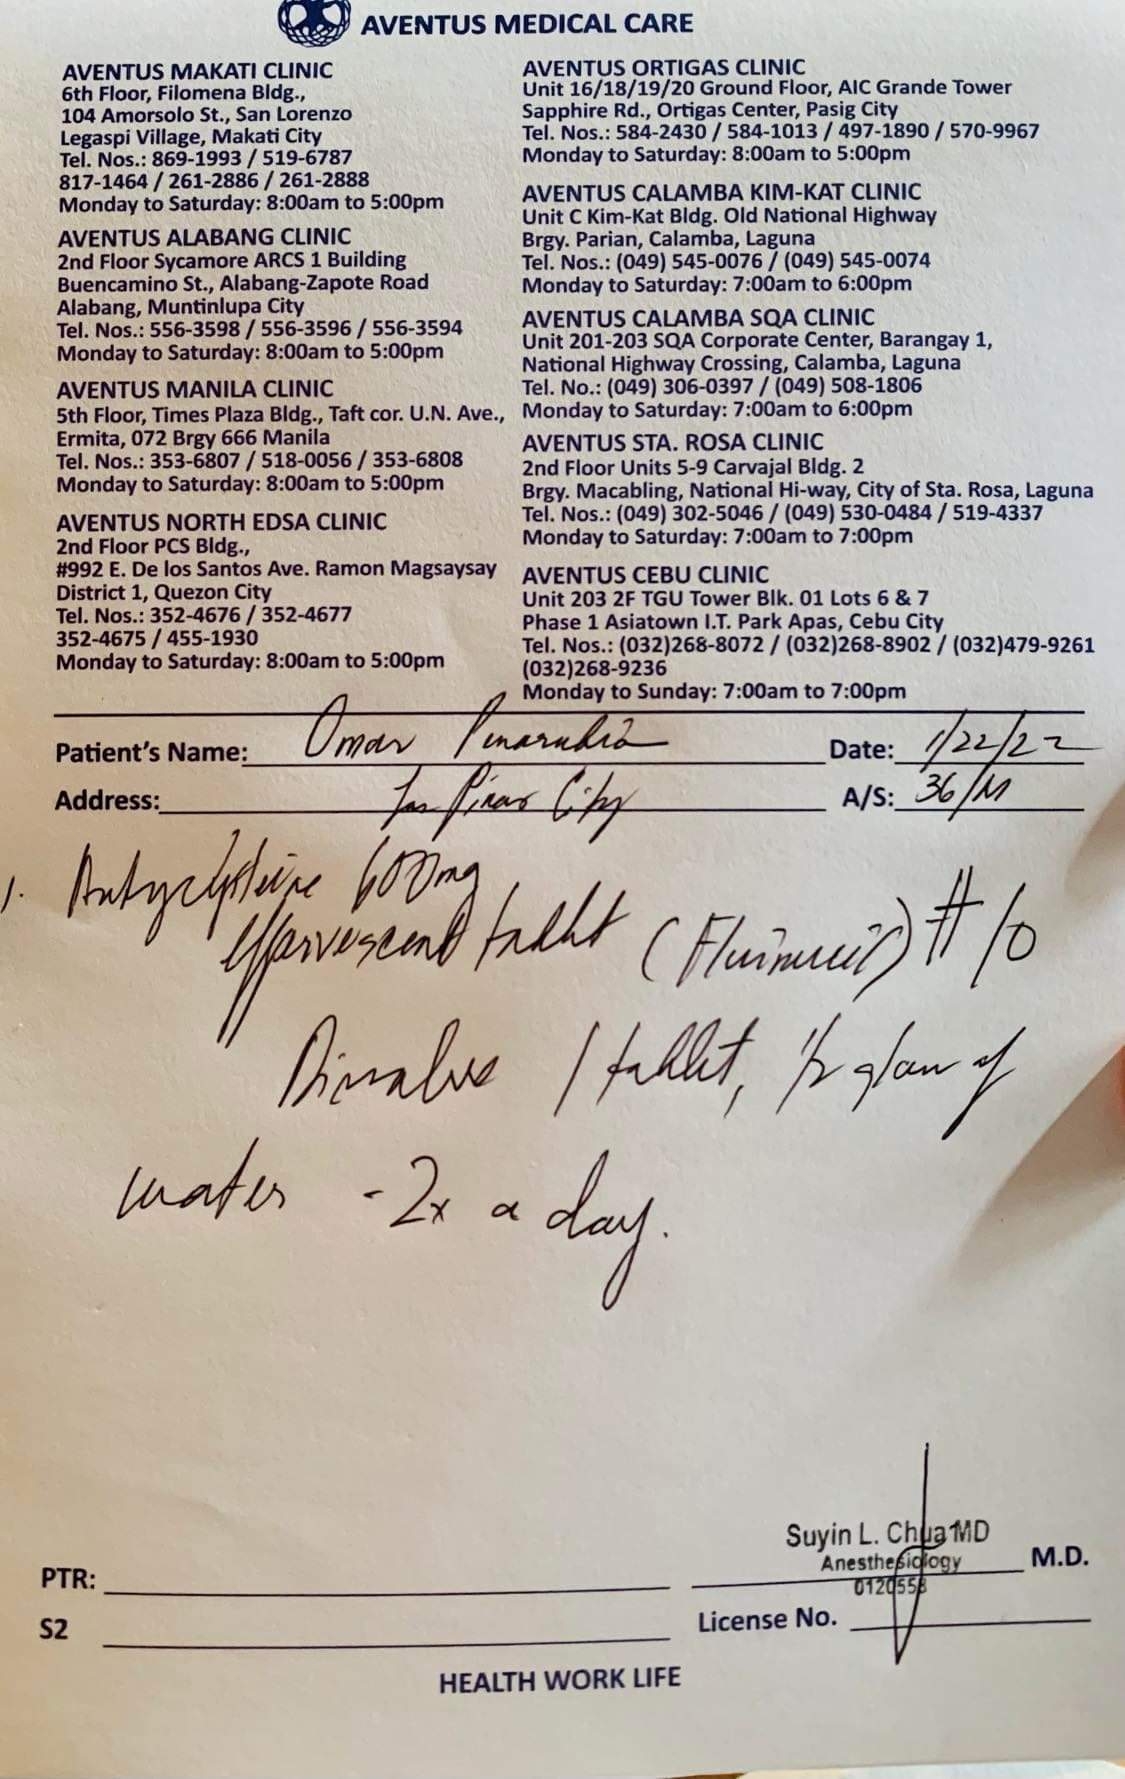 AVENTUS MEDICAL CARE
AVENTUS MAKATI CLINIC
6th Floor, Filomena Bldg.,
104 Amorsolo St., San Lorenzo
Legaspi Village, Makati City
Tel. Nos.: 869-1993 / 519-6787
817-1464 / 261-2886 / 261-2888
Monday to Saturday: 8:00am to 5:00pm
AVENTUS ALABANG CLINIC
2nd Floor Sycamore ARCS 1 Building
Buencamino St., Alabang-Zapote Road
Alabang, Muntinlupa City
Tel. Nos.: 556-3598 / 556-3596 / 556-3594
Monday to Saturday: 8:00am to 5:00pm
AVENTUS MANILA CLINIC
5th Floor, Times Plaza Bldg., Taft cor. U.N. Ave.,
Ermita, 072 Brgy 666 Manila
Tel. Nos.: 353-6807 / 518-0056 / 353-6808
Monday to Saturday: 8:00am to 5:00pm
AVENTUS NORTH EDSA CLINIC
2nd Floor PCS Bldg.,
#992 E. De los Santos Ave. Ramon Magsaysay
District 1, Quezon City
Tel. Nos.: 352-4676 / 352-4677
352-4675 / 455-1930
Monday to Saturday: 8:00am to 5:00pm
AVENTUS ORTIGAS CLINIC
Unit 16/18/19/20 Ground Floor, AIC Grande Tower
Sapphire Rd., Ortigas Center, Pasig City
Tel. Nos.: 584-2430 / 584-1013 / 497-1890 / 570-9967
Monday to Saturday: 8:00am to 5:00pm
AVENTUS CALAMBA KIM-KAT CLINIC
Unit C Kim-Kat Bldg. Old National Highway
Brgy. Parian, Calamba, Laguna
Tel. Nos.: (049) 545-0076 / (049) 545-0074
Monday to Saturday: 7:00am to 6:00pm
AVENTUS CALAMBA SQA CLINIC
Unit 201-203 SQA Corporate Center, Barangay 1,
National Highway Crossing, Calamba, Laguna
Tel. No.: (049) 306-0397 / (049) 508-1806
Monday to Saturday: 7:00am to 6:00pm
AVENTUS STA. ROSA CLINIC
2nd Floor Units 5-9 Carvajal Bldg. 2
Brgy. Macabling, National Hi-way, City of Sta. Rosa, Laguna
Tel. Nos.: (049) 302-5046 / (049) 530-0484 / 519-4337
Monday to Saturday: 7:00am to 7:00pm
AVENTUS CEBU CLINIC
Unit 203 2F TGU Tower Blk. 01 Lots 6 & 7
Phase 1 Asiatown I.T. Park Apas, Cebu City
Tel. Nos.: (032)268-8072 / (032)268-8902 / (032)479-9261
(032)268-9236
Monday to Sunday: 7:00am to 7:00pm
Patient's Name: Omar Date: 1/22/22
Address: Las Pinas City A/S: 36/M
1. 600mg
effervescent tablet (Fluimucil) #10
Dissolve 1 tablet, 1/2 glass of
water - 2x a day.
Suyin L. Chua MD
Anesthesiology
0120558
M.D.
PTR:
S2
License No.
HEALTH WORK LIFE